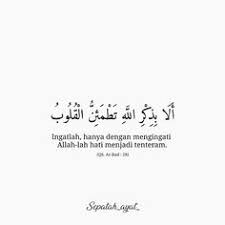 أَلَا بِذِكْرِ اللَّهِ تَطْمَئِنُّ الْقُلُوبُ
Ingatlah, hanya dengan mengingati
Allah-lah hati menjadi tenteram.
(QS. Ar-Rad : 28)
Sepatah_ayat_